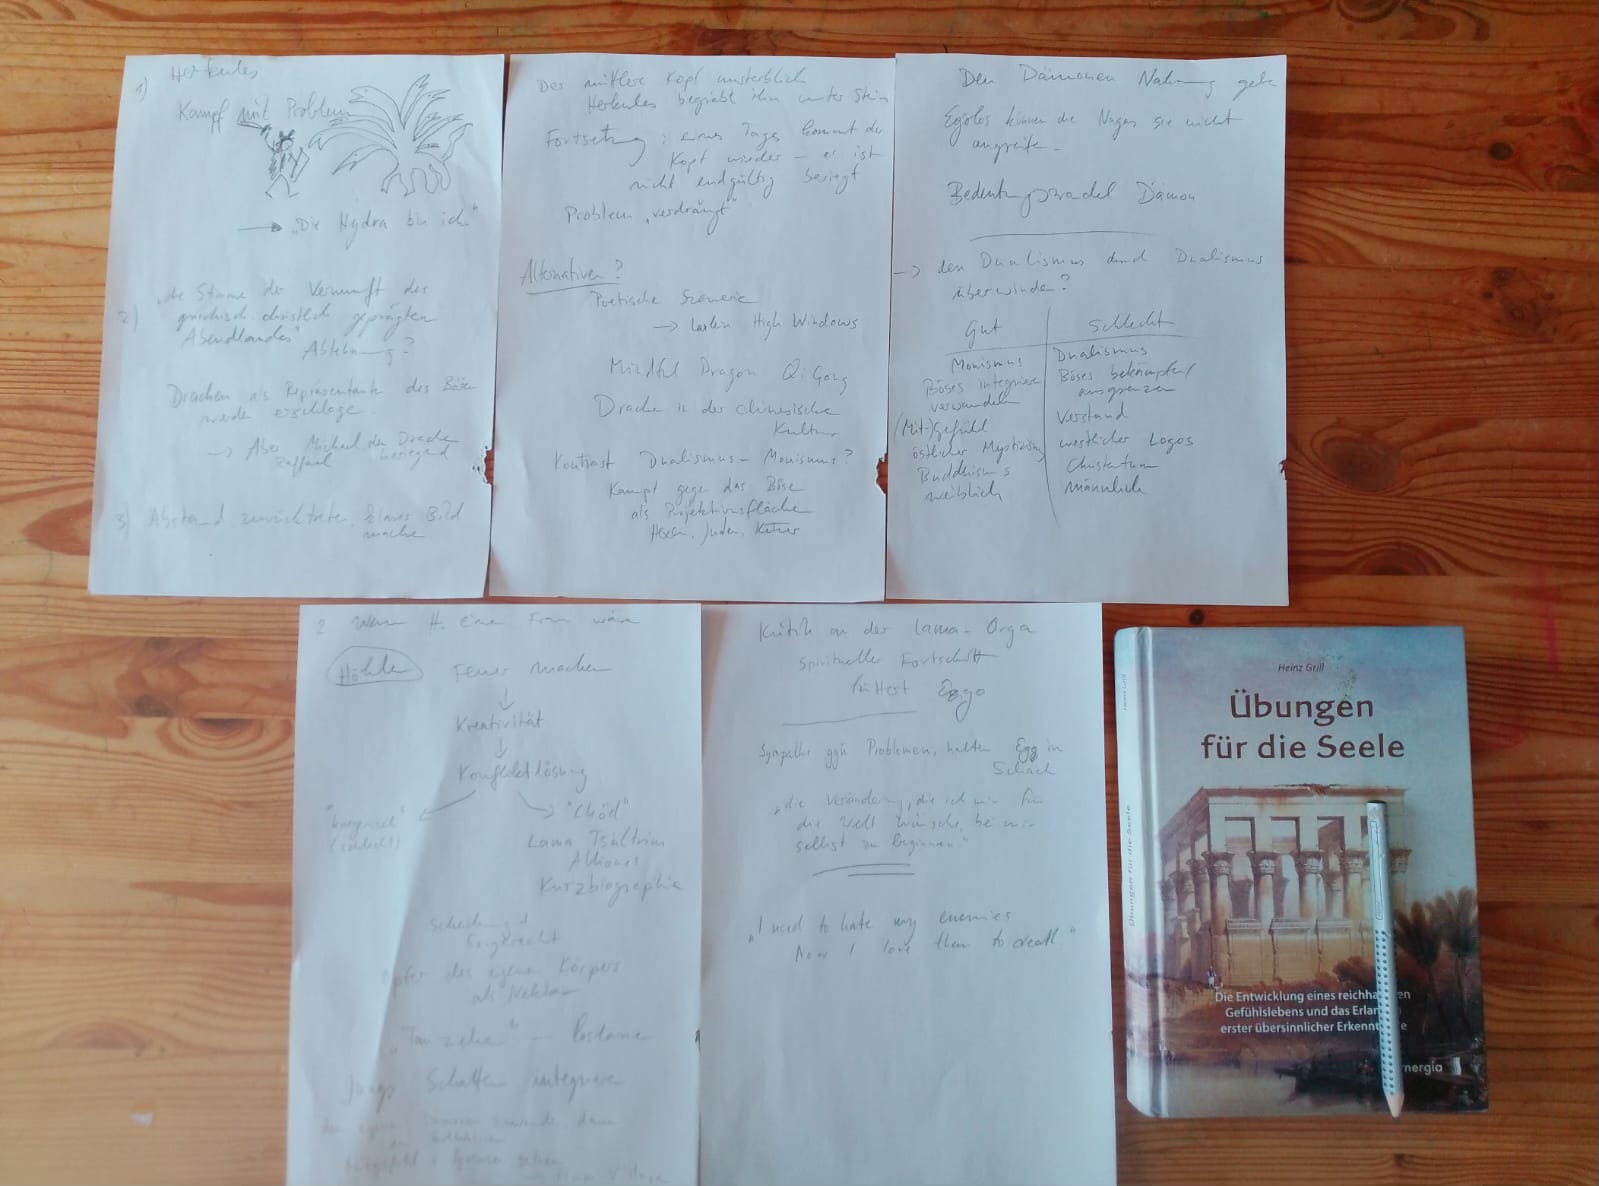 1) Herkules
Kampf mit Problem
→ "Die Hydra bin ich"
2) "die Stimme der Vernunft des
griechisch-christlich geprägten
Abendlandes"
Ablehnung?
Drachen als Repräsentante des Bösen
werde erschlage.
→ Aber Michael den Drache
Raffael besiegend
3) Abstand, zurücktrete, klares Bild
mache
Der mittlere Kopf unsterblich
Herkules begräbt ihn unter Stein
Fortsetzung: eines Tages kommt der
Kopf wieder – er ist
nicht endgültig besiegt
Problem "verdrängt"
Alternativen?
Poetische Szenerie
→ Larkin High Windows
Mindful Dragon Qi Gong
Drache in der chinesische
Kultur
Kontrast Dualismus – Monismus?
Kampf gegen das Böse
als Projektionsfläche
Hexen, Juden, Ketzer
Den Dämonen Nahrung gebe
Egolos können die Nagas sie nicht
angreife.
Bedeutungswandel Dämon
→ den Dualismus durch Dualismus
überwinde?
Gut
Schlecht
Monismus
Dualismus
Böses integriere
verwandeln
Böses bekämpfen/
ausgrenzen
(Mit-)Gefühl
Verstand
östlicher Mystizismus
westlicher Logos
Buddhismus
Christentum
weiblich
männlich
2 Wenn H. eine Frau wäre
Höhle
Feuer machen
↓
Kreativität
↓
Konfliktlösung
"kriegerisch"
(schlecht)
"Chöd"
Lama Tsültrim
Alliones
Kurzbiographie
Scheidung d
Sorgerecht
Opfer des eigenen Körpers
als Nektar
"Tauziehe" –
Jungs Schatten integriere
Kritik an der Lama-Orga
Spiritueller Fortschritt
füttert Ego
Sympathie ggü Problemen, halten Ego in
Schach
"die Veränderung, die ich mir für
die Welt wünsche, bei mir
selbst zu beginnen."
"I used to hate my enemies
Now I love them to death"
Heinz Grill
Übungen
für die Seele
Die Entwicklung eines reichha en
Gefühlslebens und das Erlan
erster übersinnlicher Erkennt e
nergia
Heinz Grill
Übungen für die Seele